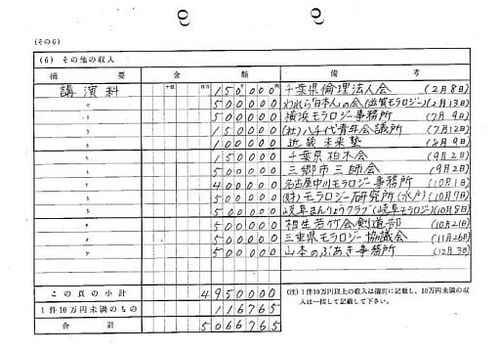 (その6)
(6) その他の収入
摘 要 金 額 備 考
講演料 150000 千葉県倫理法人会 (2月8日)
〃 500000 われら日本人の会(滋賀モラロジー)(2月13日)
〃 500000 横浜モラロジー事務所 (7月9日)
〃 150000 (社)八千代青年会議所 (7月12日)
〃 100000 近義未来塾 (8月9日)
〃 150000 千葉県柏木会 (9月2日)
〃 500000 三郷市三師会 (9月2日)
〃 400000 名古屋中川モラロジー事務所 (10月1日)
〃 500000 (財)モラロジー研究所(水戸) (10月7日)
〃 500000 岐阜まんりょうクラブ(岐阜モラロジー)(10月8日)
〃 500000 相生若竹会剣道部
〃 500000 三重県モラロジー協議会 (11月26日)
〃 500000 山本のぶあき事務所 (12月3日)
この頁の小計 4950000
1件10万円未満のもの 116765
合 計 5066765
(注) 1件10万円以上の収入は個別に記載し、10万円未満の収入は一括して記載して下さい。